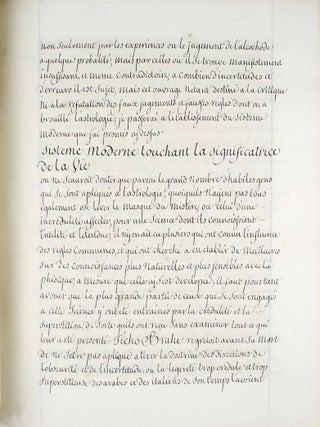 non seulement par les experiences ou le jugement de l'alcohode
a quelque probalité, mais par celles ou il se trouve manifestement
insufisant, et meme contradictoire, a combien d'incertitudes et
d'erreurs il est sujet, mais cet ouvrage n'etant destiné a la critique
ni a la refutation des faux jugements et fausses regles dont on a
brouillé l'astrologie; je passerai a l'etablissement du sisteme
moderne que j'ai promis cy dessus
sisteme Moderne touchant la significatrice
de la Vie
on ne scauroit douter que parmi le grand nombre d'habiles gens
qui se sont apliqués a l'astrologie, quoiqu'ils n'ajent pas tous
egalement osé lever le masque du mistere, ou celui d'une
incredulité affectée, pour une science dont ils connoissoient
l'utilité et l'etendue, il n'y en ait eu plusieurs qui ont connu l'insufisance
des regles communes, et qui ont cherché a en etablir de meilleures
sur des connoissances plus naturelles et plus sensibles avec la
phisique, a mesure que celle cy s'est developée, il faut pourtant
avouer que la plus grande partie de ceux qui se sont engagés
a cette science y ont eté entrainés par la credulité et la
superstition de sorte qu'ils ont reçu sans examiner tout ce qui
leur a eté presenté. Ticho Brahe regretoit avant sa mort
de ne s'etre pas apliqué a tirer la doctrine des directions de
l'obscurité et de l'incertitude, ou la legereté trop credule et trop
superstitieuse des arabes et des italiens de son temps l'avoient